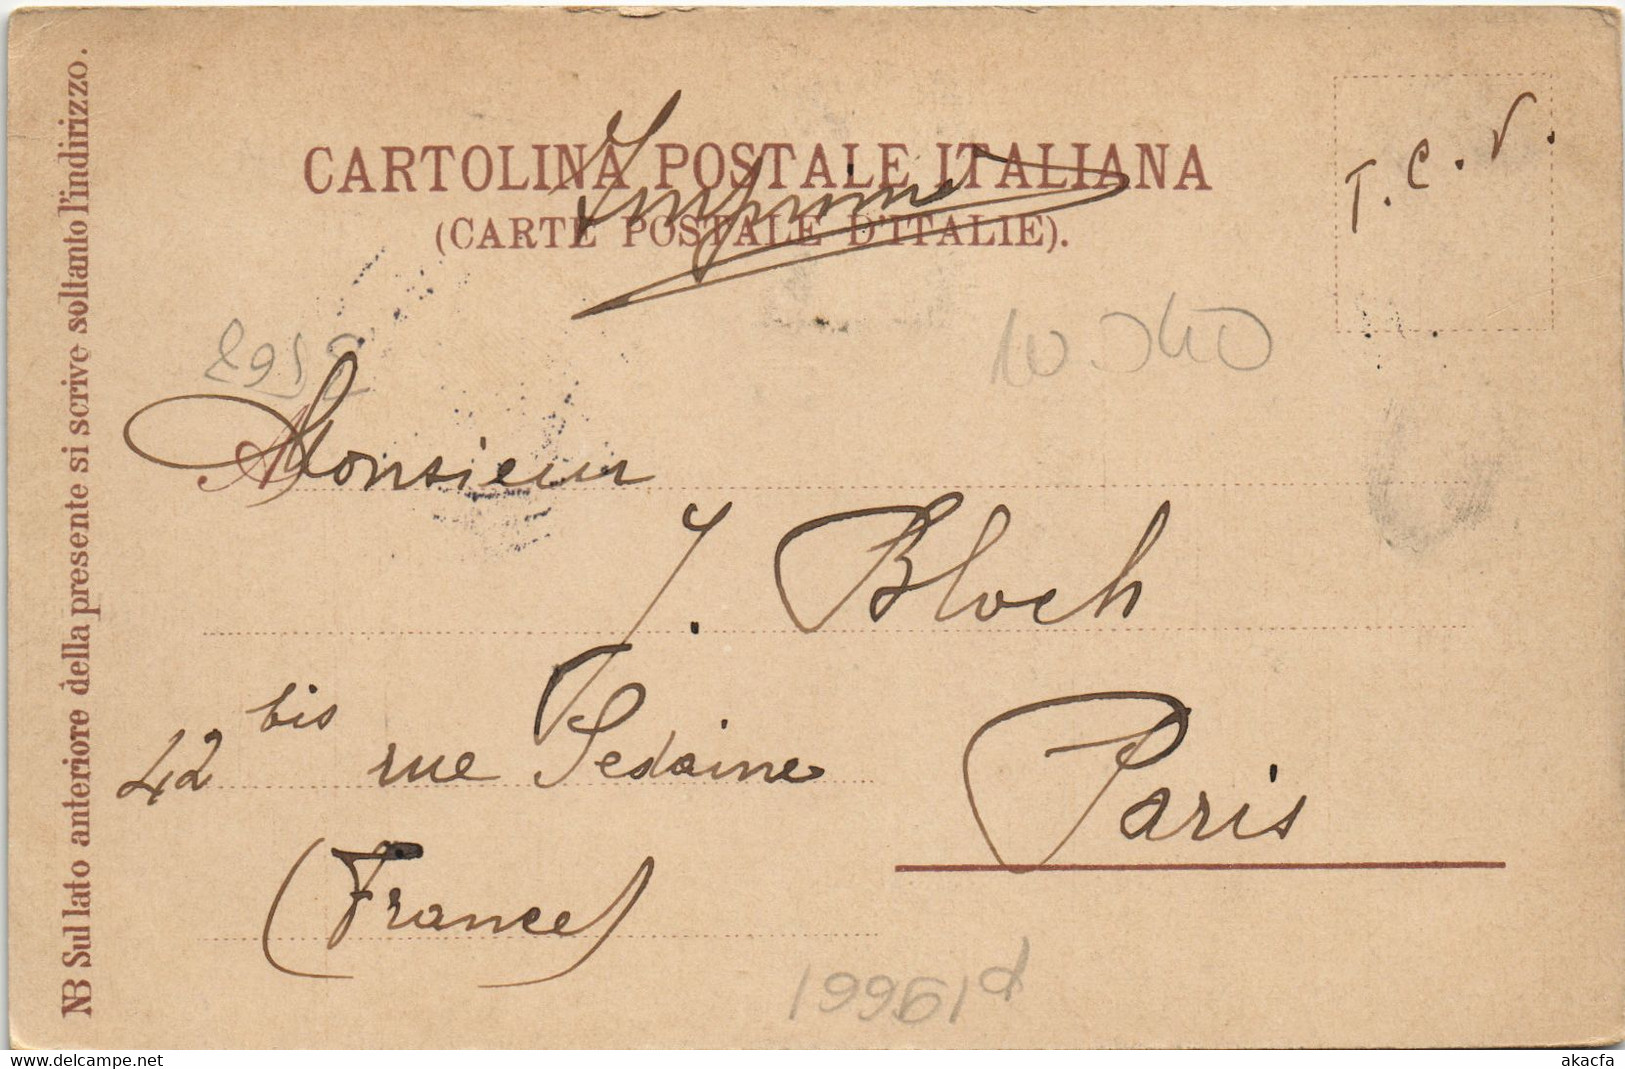 CARTOLINA POSTALE ITALIANA
(CARTE POSTALE D'ITALIE).
Imprimé
T. C. V.
Monsieur
J. Bloch
42 bis rue Sedaine
Paris
(France)
NB Sul lato anteriore della presente si scrive soltanto l'indirizzo.
delcampe.net
akacfa